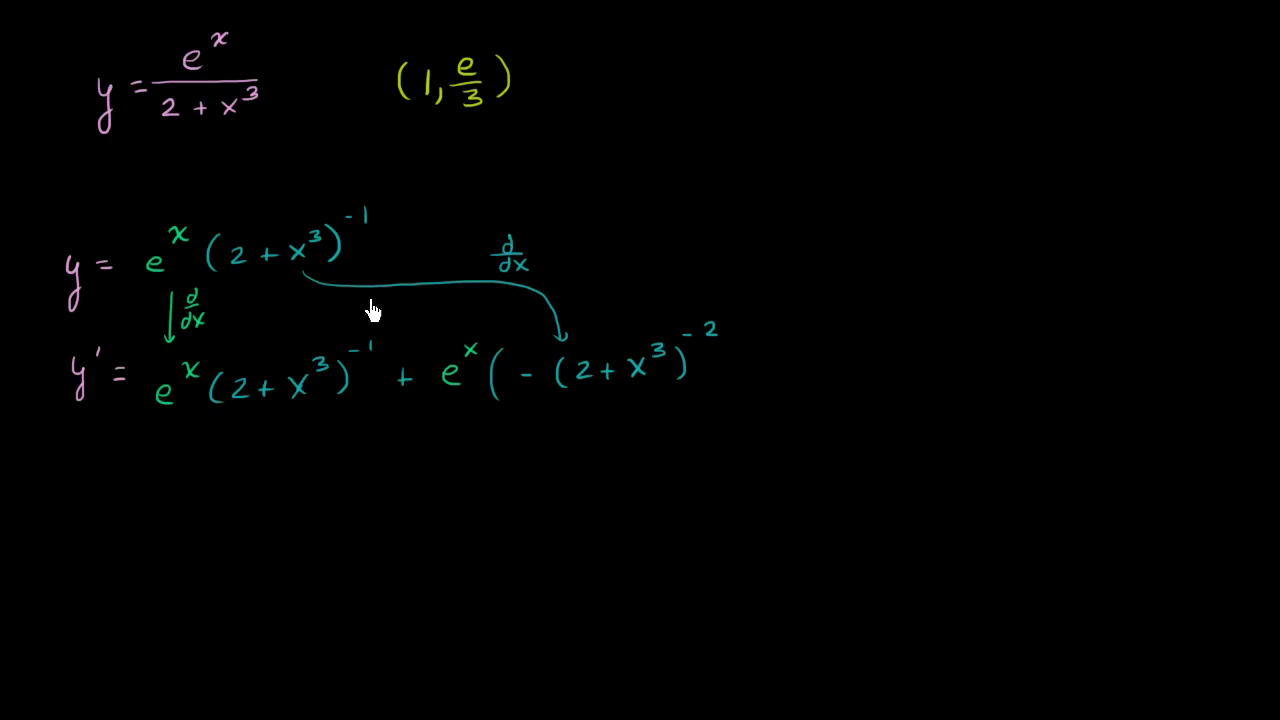 y = e^x / (2 + x^3) (1, e/3)
y = e^x (2 + x^3)^-1 d/dx
d/dx
y' = e^x (2 + x^3)^-1 + e^x ( - (2 + x^3)^-2